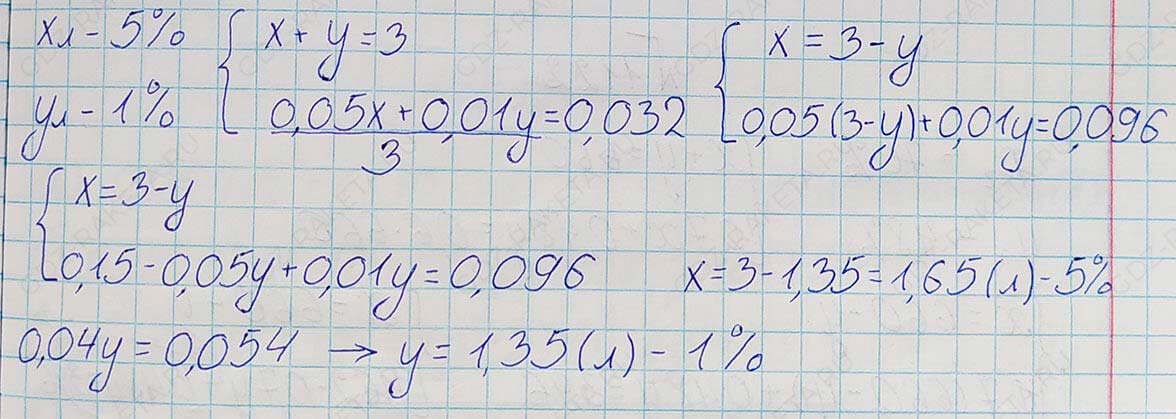 xл - 5% { x + y = 3 { x = 3 - y
yл - 1% (0,05x + 0,01y)/3 = 0,032 0,05(3 - y) + 0,01y = 0,096
{ x = 3 - y
0,15 - 0,05y + 0,01y = 0,096 x = 3 - 1,35 = 1,65 (л) - 5%
0,04y = 0,054 → y = 1,35 (л) - 1%